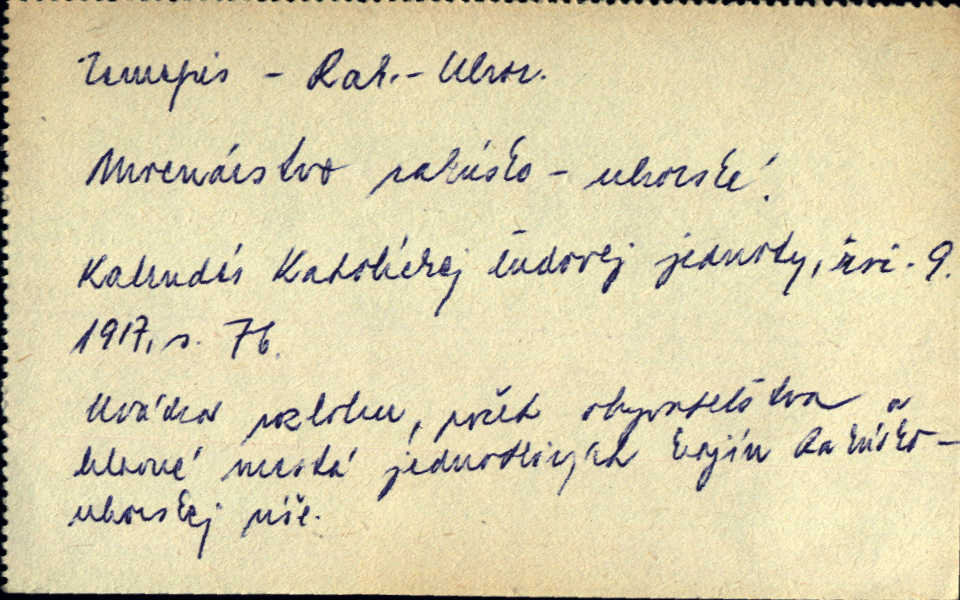 Zemepis - Rak.-Uhor.
Mocnárstvo rakúsko-uhorské.
Kalendár Katolíckej ľudovej jednoty, roč. 9.
1917, s. 76.
Uvádza rozlohu, počet obyvateľstva a
hlavné mestá jednotlivých krajín Rakúsko-
uhorskej ríše.